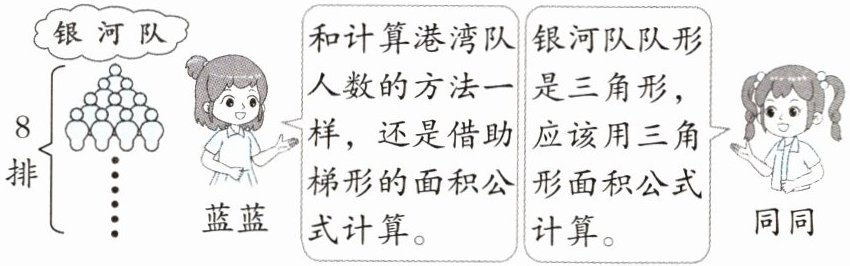 银河队
8
排
蓝蓝
和计算港湾队
人数的方法一
样，还是借助
梯形的面积公
式计算。
银河队队形
是三角形，
应该用三角
形面积公式
计算。
同同